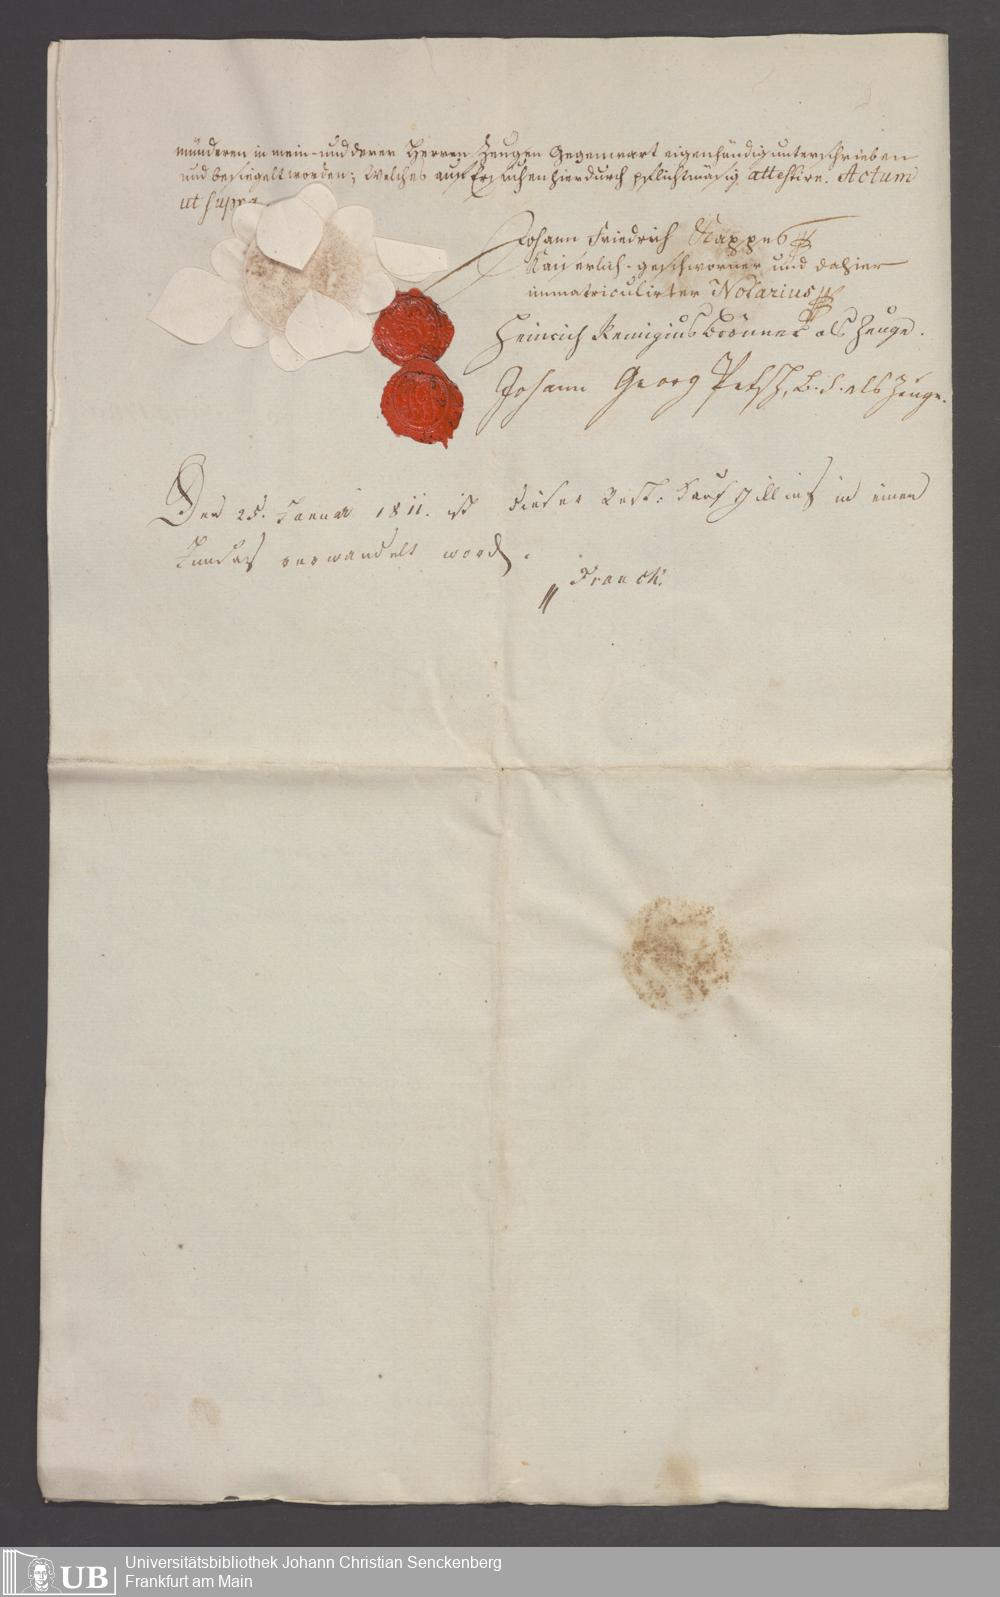 munderen in mein- und derer Herren Zeugen Gegenwart eigenhändig unterschrieben
und besiegelt worden; Welches auf Ersuchen hierdurch pflichtmäsig attestire. Actum
ut supra
Johann Friedrich Kappes
Kaiserlich-geschworner und dahier
immatriculirter Notarius
Heinrich Remigius Brönner als Zeuge.
Johann Georg als Zeuge.
Den 25. Januar 1811. ist dieser Rest: Kaufschilling in einen
verwandelt word.
Franck.
UB
Universitätsbibliothek Johann Christian Senckenberg
Frankfurt am Main